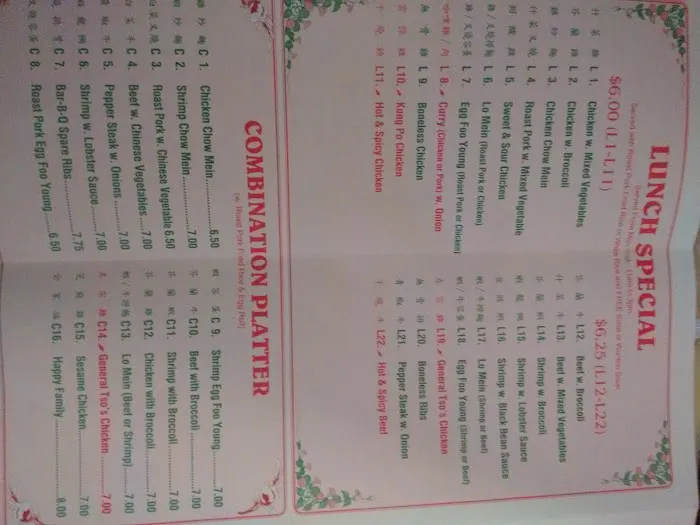 LUNCH SPECIAL
$6.00 (L1-L11)
什菜雞 L 1. Chicken w. Mixed Vegetables
芥蘭雞 L 2. Chicken w. Broccoli
雞炒麵 L 3. Chicken Chow Mein
什菜叉燒 L 4. Roast Pork w. Mixed Vegetable
甜酸雞 L 5. Sweet & Sour Chicken
雞/叉燒撈麵 L 6. Lo Mein (Roast Pork or Chicken)
雞/叉燒蓉蛋 L 7. Egg Foo Young (Roast Pork or Chicken)
咖喱雞/肉 L 8. Curry (Chicken or Pork) w. Onion
無骨雞 L 9. Boneless Chicken
宮保雞 L10. Kung Po Chicken
干燒雞 L11. Hot & Spicy Chicken
$6.25 (L12-L22)
芥蘭牛 L12. Beef w. Broccoli
什菜牛 L13. Beef w. Mixed Vegetables
芥蘭蝦 L14. Shrimp w. Broccoli
蝦龍糊 L15. Shrimp w. Lobster Sauce
豆豉蝦 L16. Shrimp w. Black Bean Sauce
蝦/牛撈麵 L17. Lo Mein (Shrimp or Beef)
蝦/牛蓉蛋 L18. Egg Foo Young (Shrimp or Beef)
左宗雞 L19. General Tso's Chicken
無骨排 L20. Boneless Ribs
青椒牛 L21. Pepper Steak w. Onion
干燒牛 L22. Hot & Spicy Beef
COMBINATION PLATTER
(w. Roast Pork Fried Rice & Egg Roll)
雞炒麵 C 1. Chicken Chow Mein 6.50
蝦炒麵 C 2. Shrimp Chow Mein 7.00
白菜叉燒 C 3. Roast Pork w. Chinese Vegetable 6.50
白菜牛 C 4. Beef w. Chinese Vegetables 7.00
青椒牛 C 5. Pepper Steak w. Onions 7.00
蝦龍糊 C 6. Shrimp w. Lobster Sauce 7.00
燒排骨 C 7. Bar-B-Q Spare Ribs 7.75
叉燒蓉蛋 C 8. Roast Pork Egg Foo Young 6.50
蝦蓉蛋 C 9. Shrimp Egg Foo Young 7.00
芥蘭牛 C10. Beef with Broccoli 7.00
芥蘭蝦 C11. Shrimp with Broccoli 7.00
芥蘭雞 C12. Chicken with Broccoli 7.00
蝦/牛撈麵 C13. Lo Mein (Beef or Shrimp) 7.00
左宗雞 C14. General Tso's Chicken 7.00
芝麻雞 C15. Sesame Chicken 7.00
全家福 C16. Happy Family 8.00